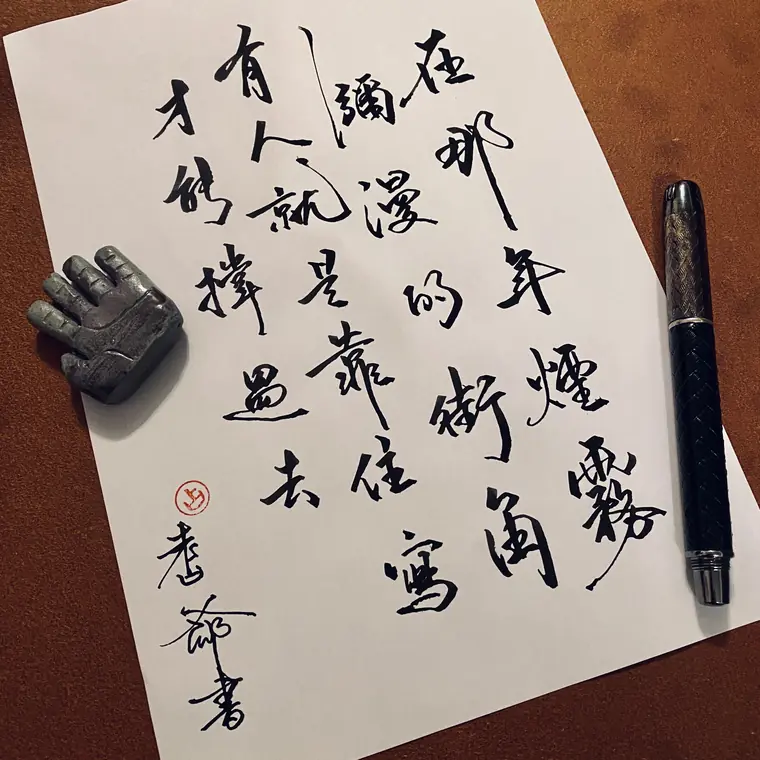 在那年煙霧
彌漫的街角
有人就是靠住寫
才能撐過去
爺書